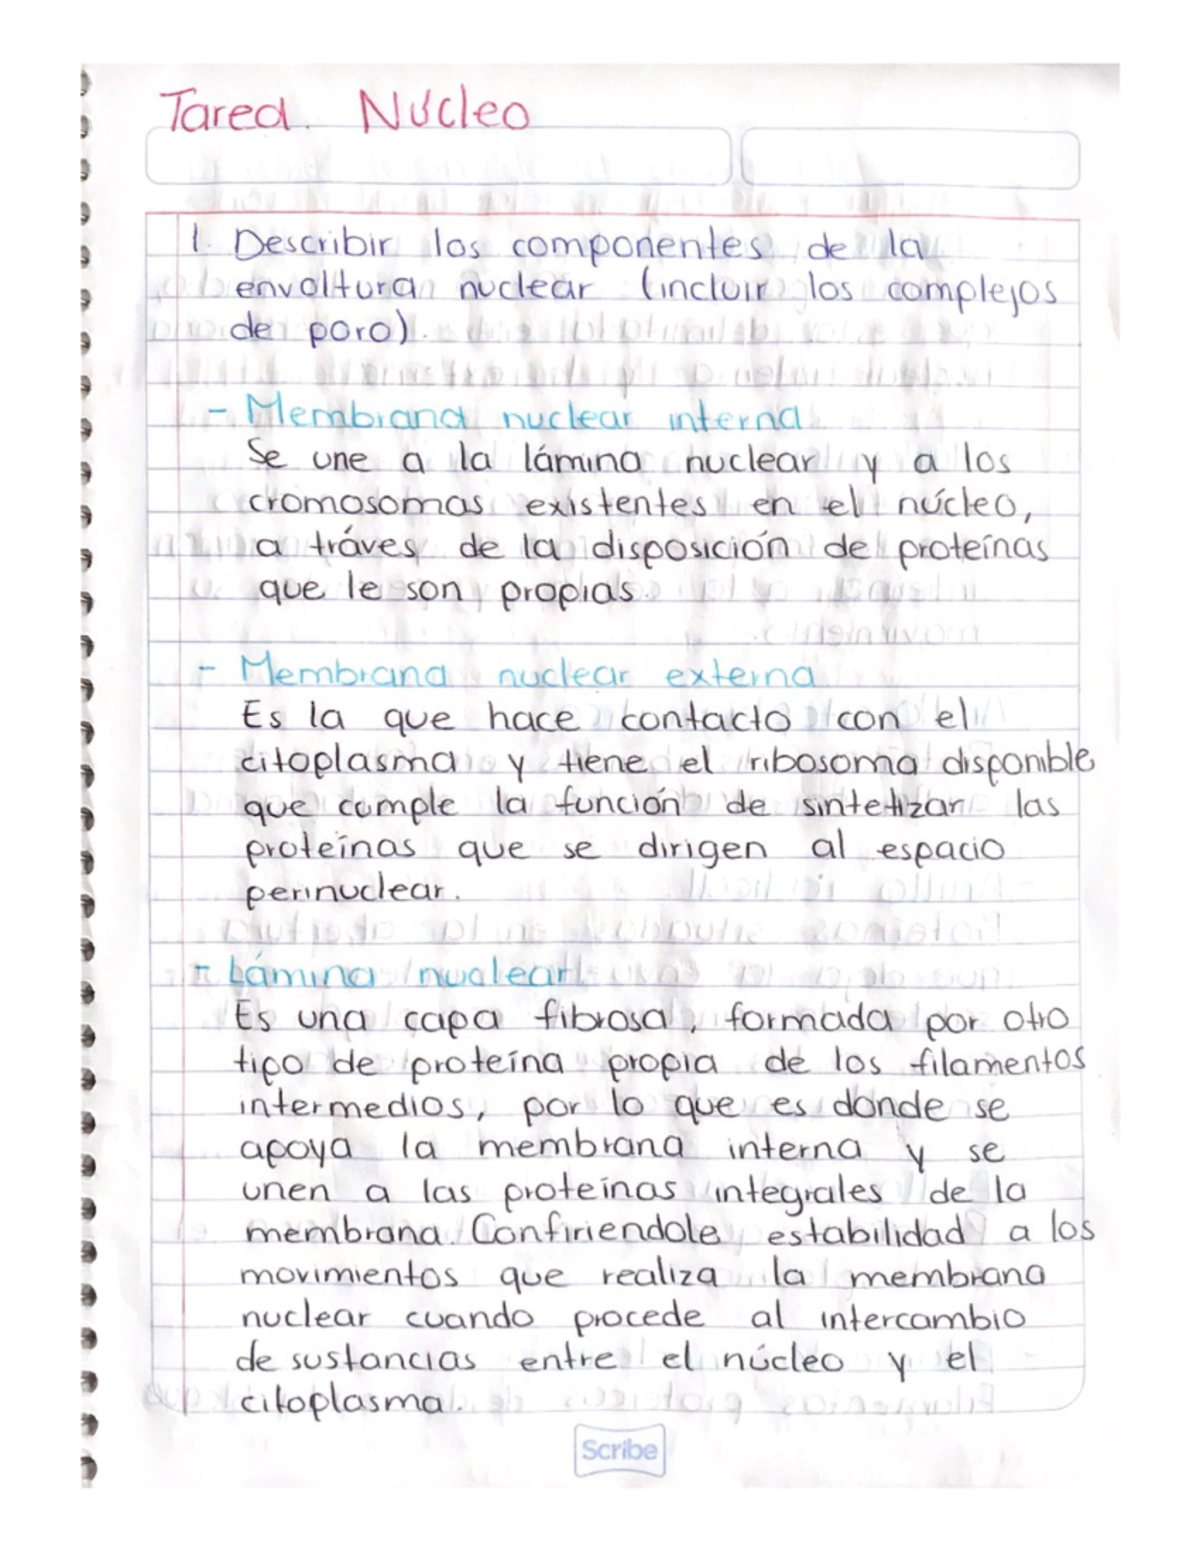 Tarea. Núcleo
1. Describir los componentes de la
envoltura nuclear (incluir los complejos
de poro).
- Membrana nuclear interna
Se une a la lámina nuclear y a los
cromosomas existentes en el núcleo,
a tráves de la disposición de proteínas
que le son propias.
- Membrana nuclear externa
Es la que hace contacto con el
citoplasma y tiene el ribosoma disponible
que cumple la función de sintetizar las
proteínas que se dirigen al espacio
perinuclear.
- Lámina nuclear
Es una capa fibrosa, formada por otro
tipo de proteína propia de los filamentos
intermedios, por lo que es donde se
apoya la membrana interna y se
unen a las proteínas integrales de la
membrana. Confiriendole estabilidad a los
movimientos que realiza la membrana
nuclear cuando procede al intercambio
de sustancias entre el núcleo y el
citoplasma.
Scribe